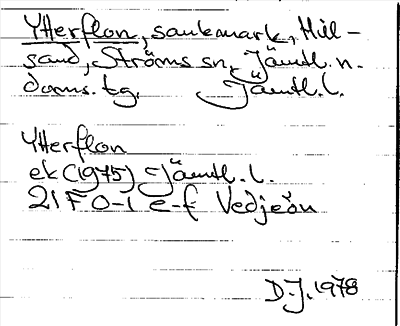 Ytterflon, sankmark, Hill-
sand, Ströms sn, Jämtl. n.
doms. tg. Jämtl. l.
Ytterflon
ek (1975) Jämtl. l.
21F 0-1 e-f Vedjeön
D.J. 1978